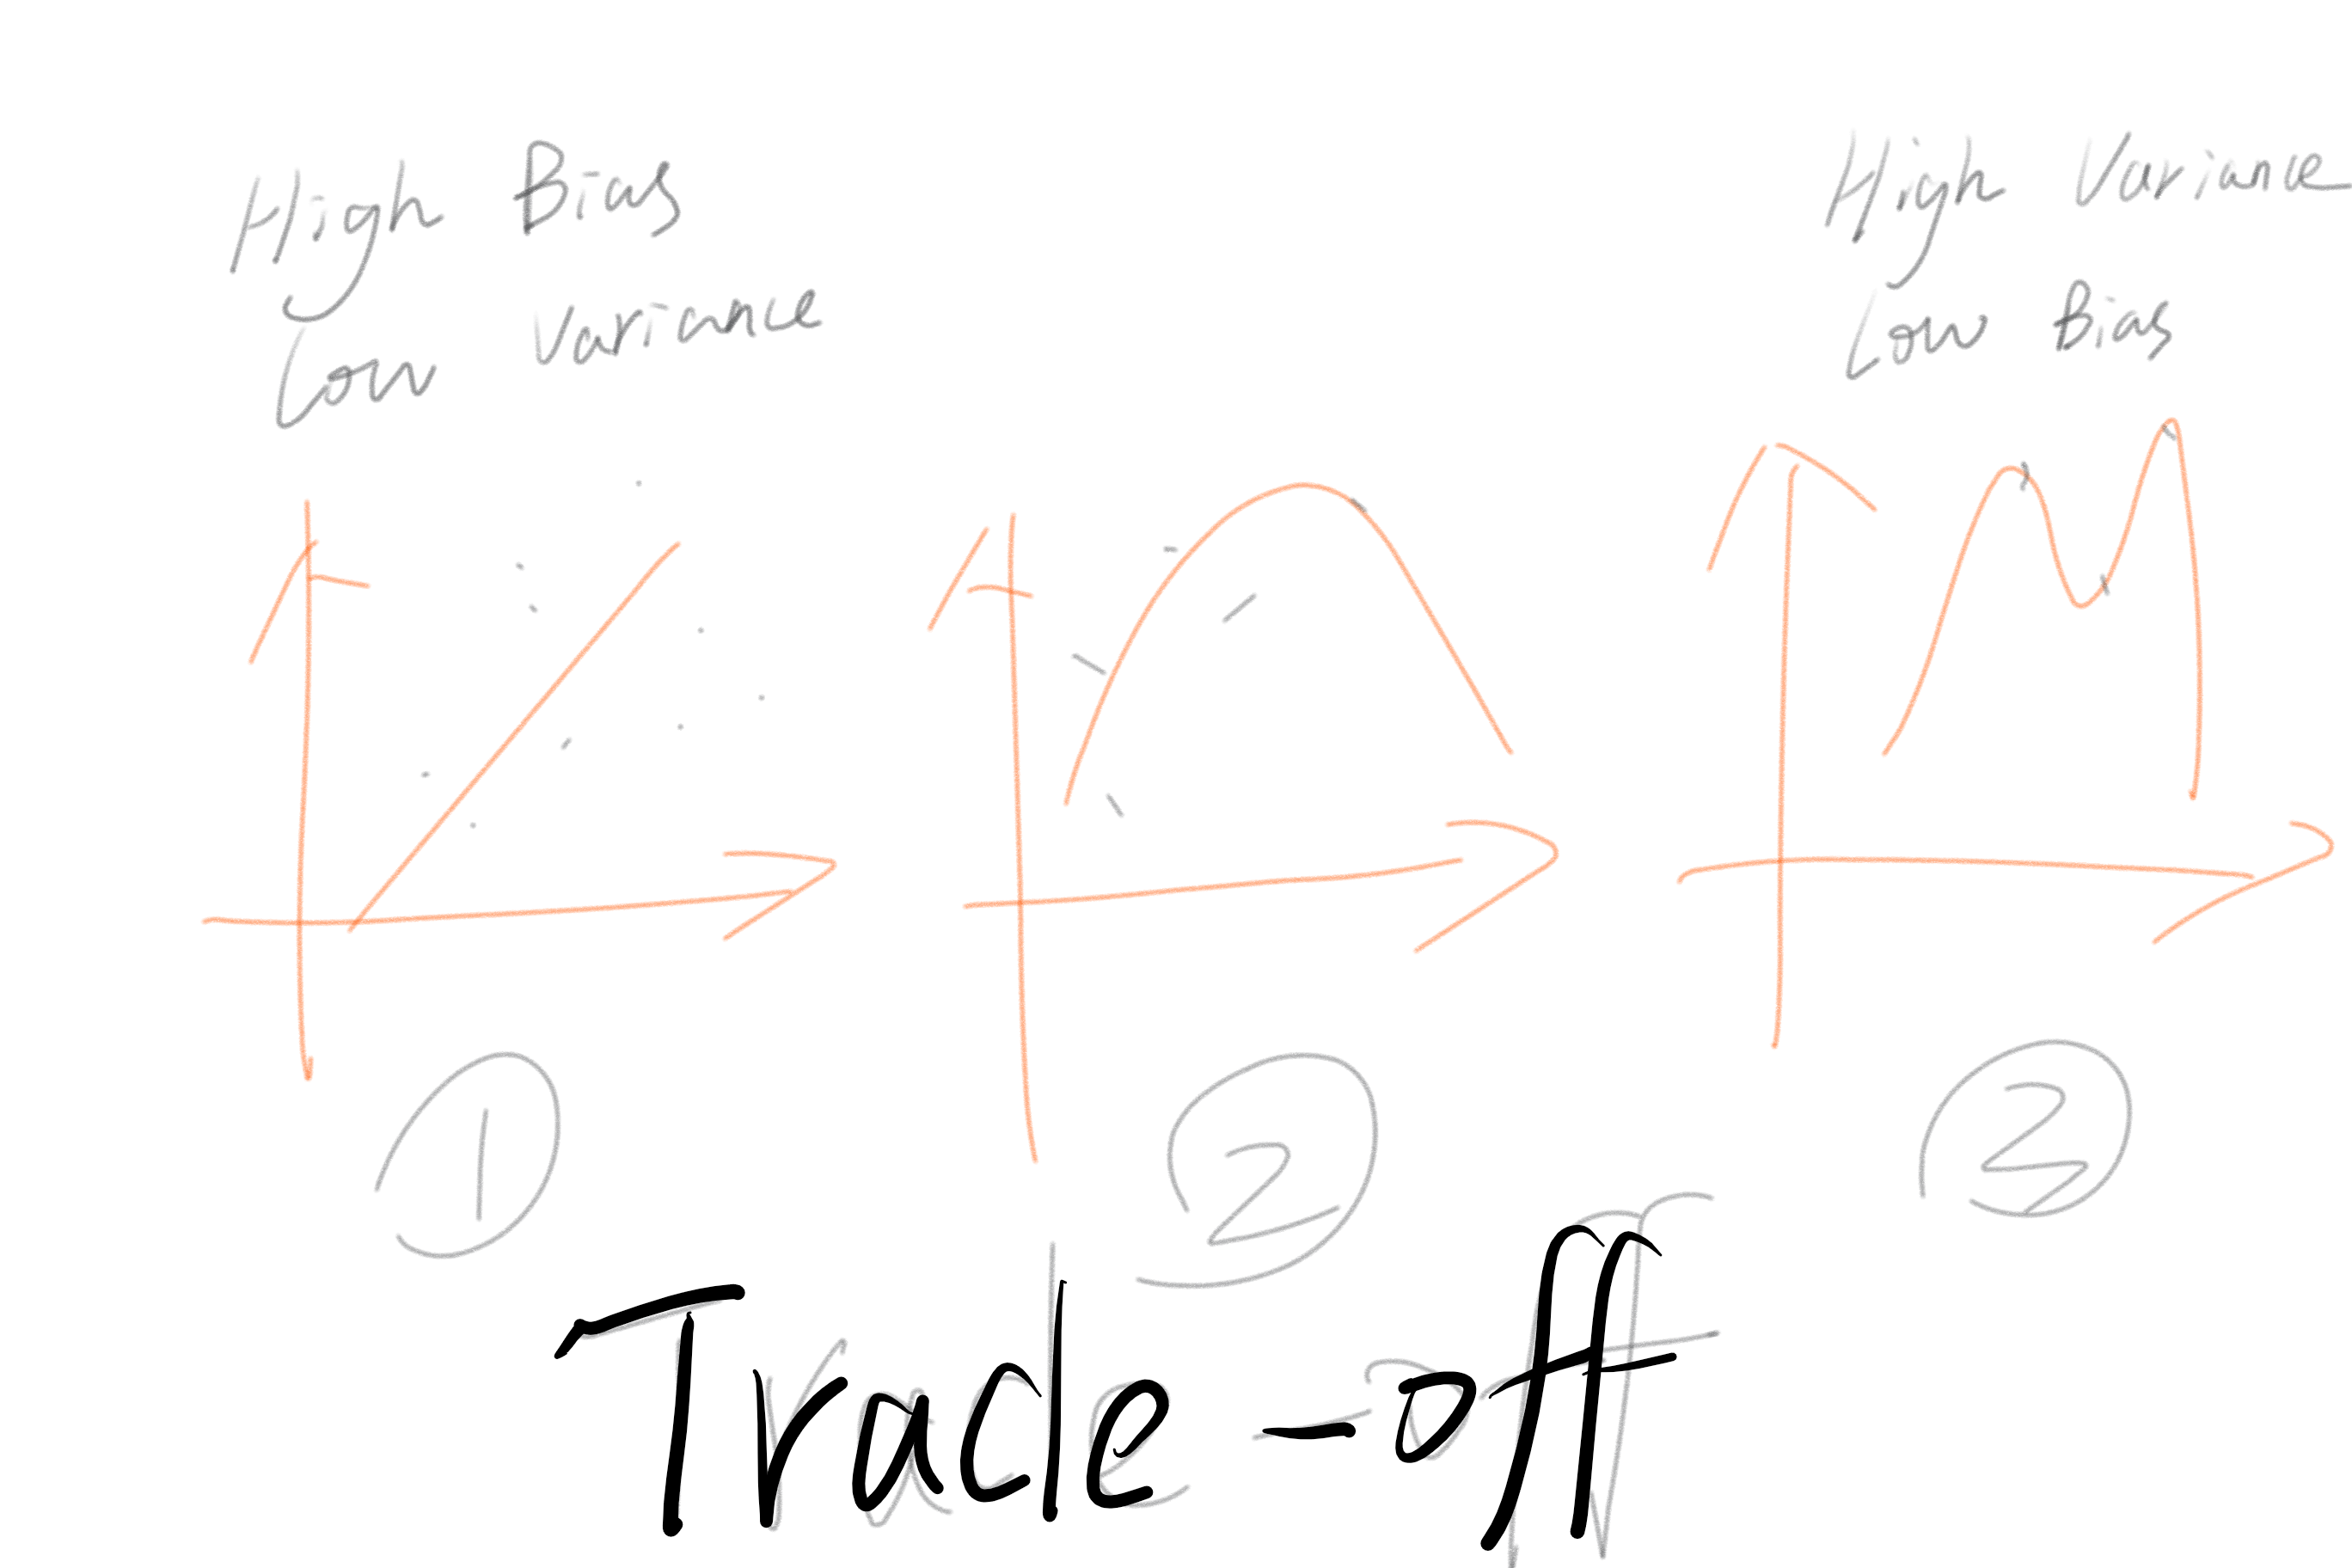 High Bias
Low Variance
High Variance
Low Bias
1
2
3
Trade-off